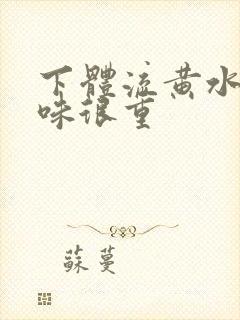 下體流黄水
味很重
蘇蔓